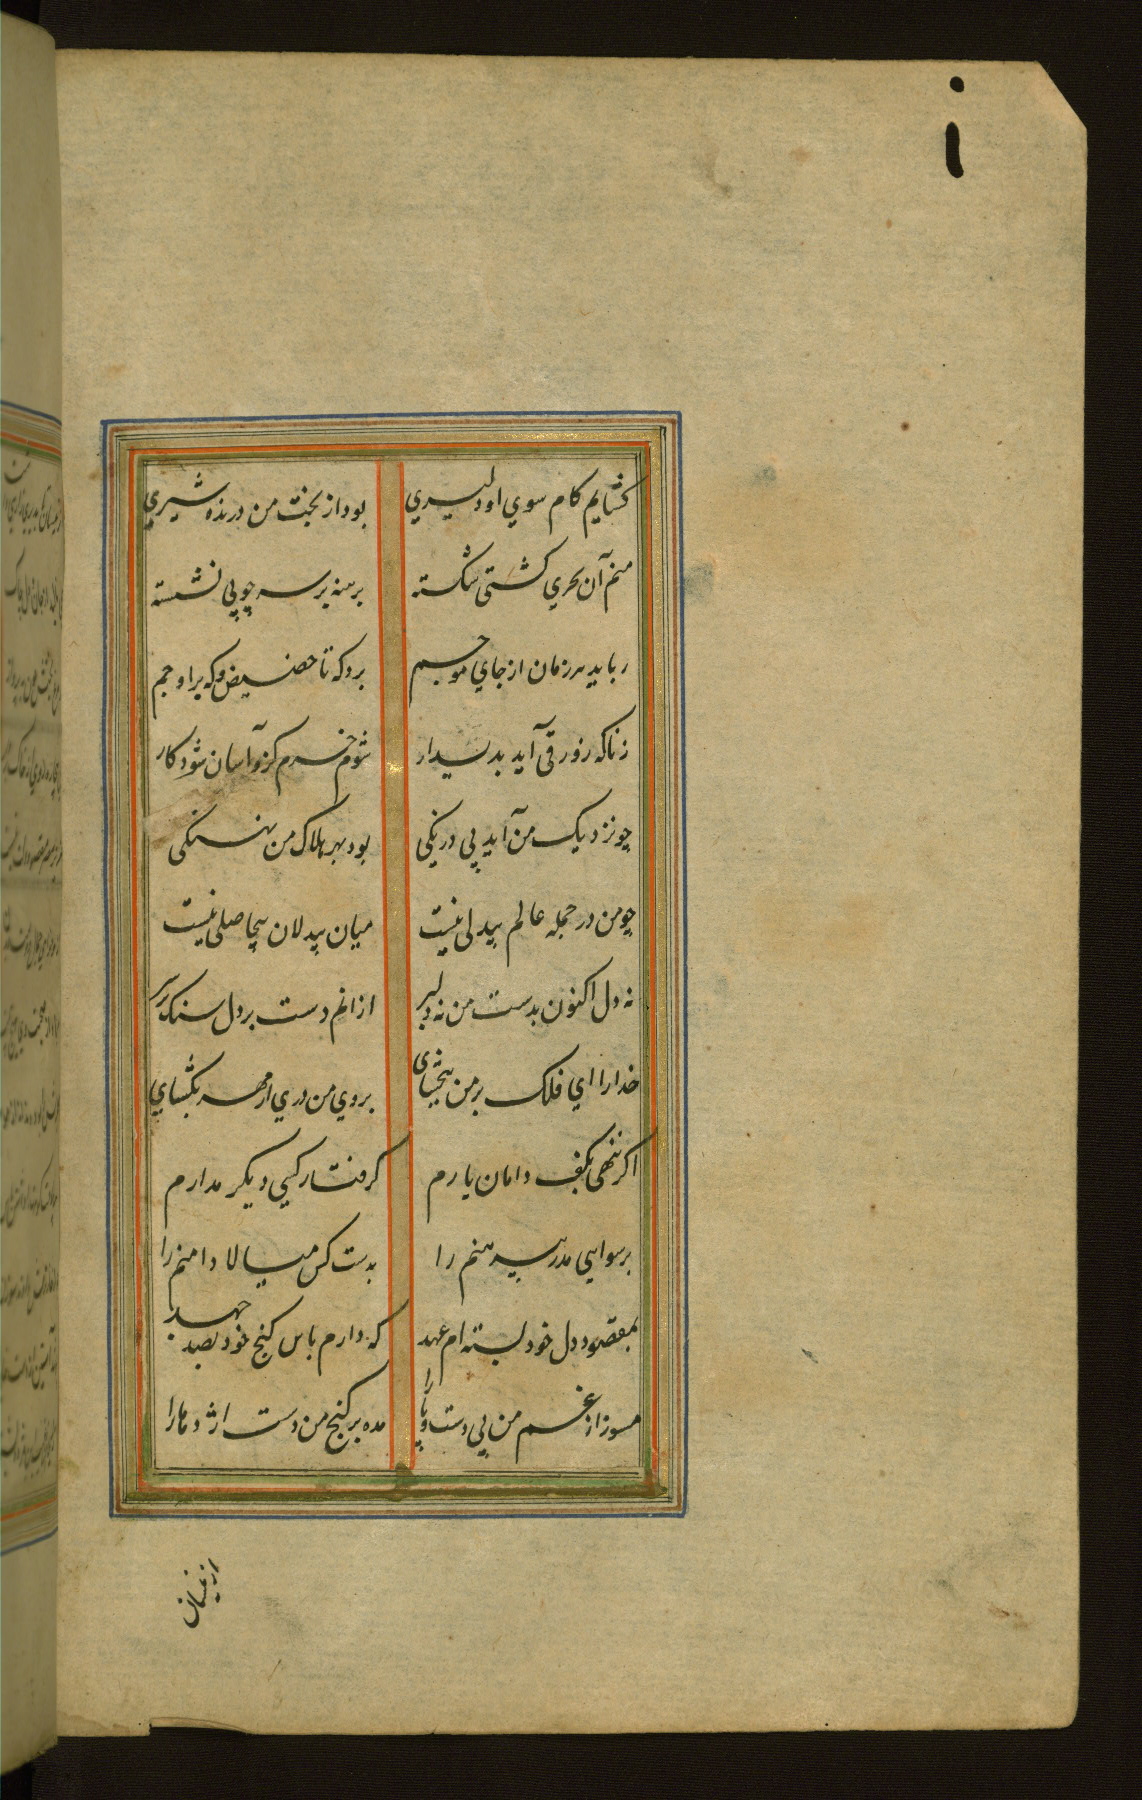 کشایم کام سوي او دلیري بود از بخت من درنده شیري
منم آن بحري کشتی شکسته برهنه بر سر چوپی نشسته
رباید هر زمان از جاي موجم برد که تا حضیض و که بر اوجم
ز ناکه زورقی آید بدیدار شوم خرم کزو آسان شود کار
چو نزدیک من آید پی درنکی بود بهر هلاک من نهنکی
چو من در جمله عالم بیدلی نیست میان بیدلان بیحاصلی نیست
نه دل اکنون بدست من نه دلبر ازانم دست بر دل سنک بر سر
خدا را اي فلک بر من ببخشای بروي من دري از مهر بکشاي
اکر ننهی بکف دامان یارم کرفتار کسی دیکر مدارم
برسوایی مدر پیرهنم را بدست کس میالا دامنم را
بمقصود دل خود بسته ام عهد که دارم پاس کنج خود بصد جهد
مسوز از غم من پی دست و پا را مده بر کنج من دست اژدها را